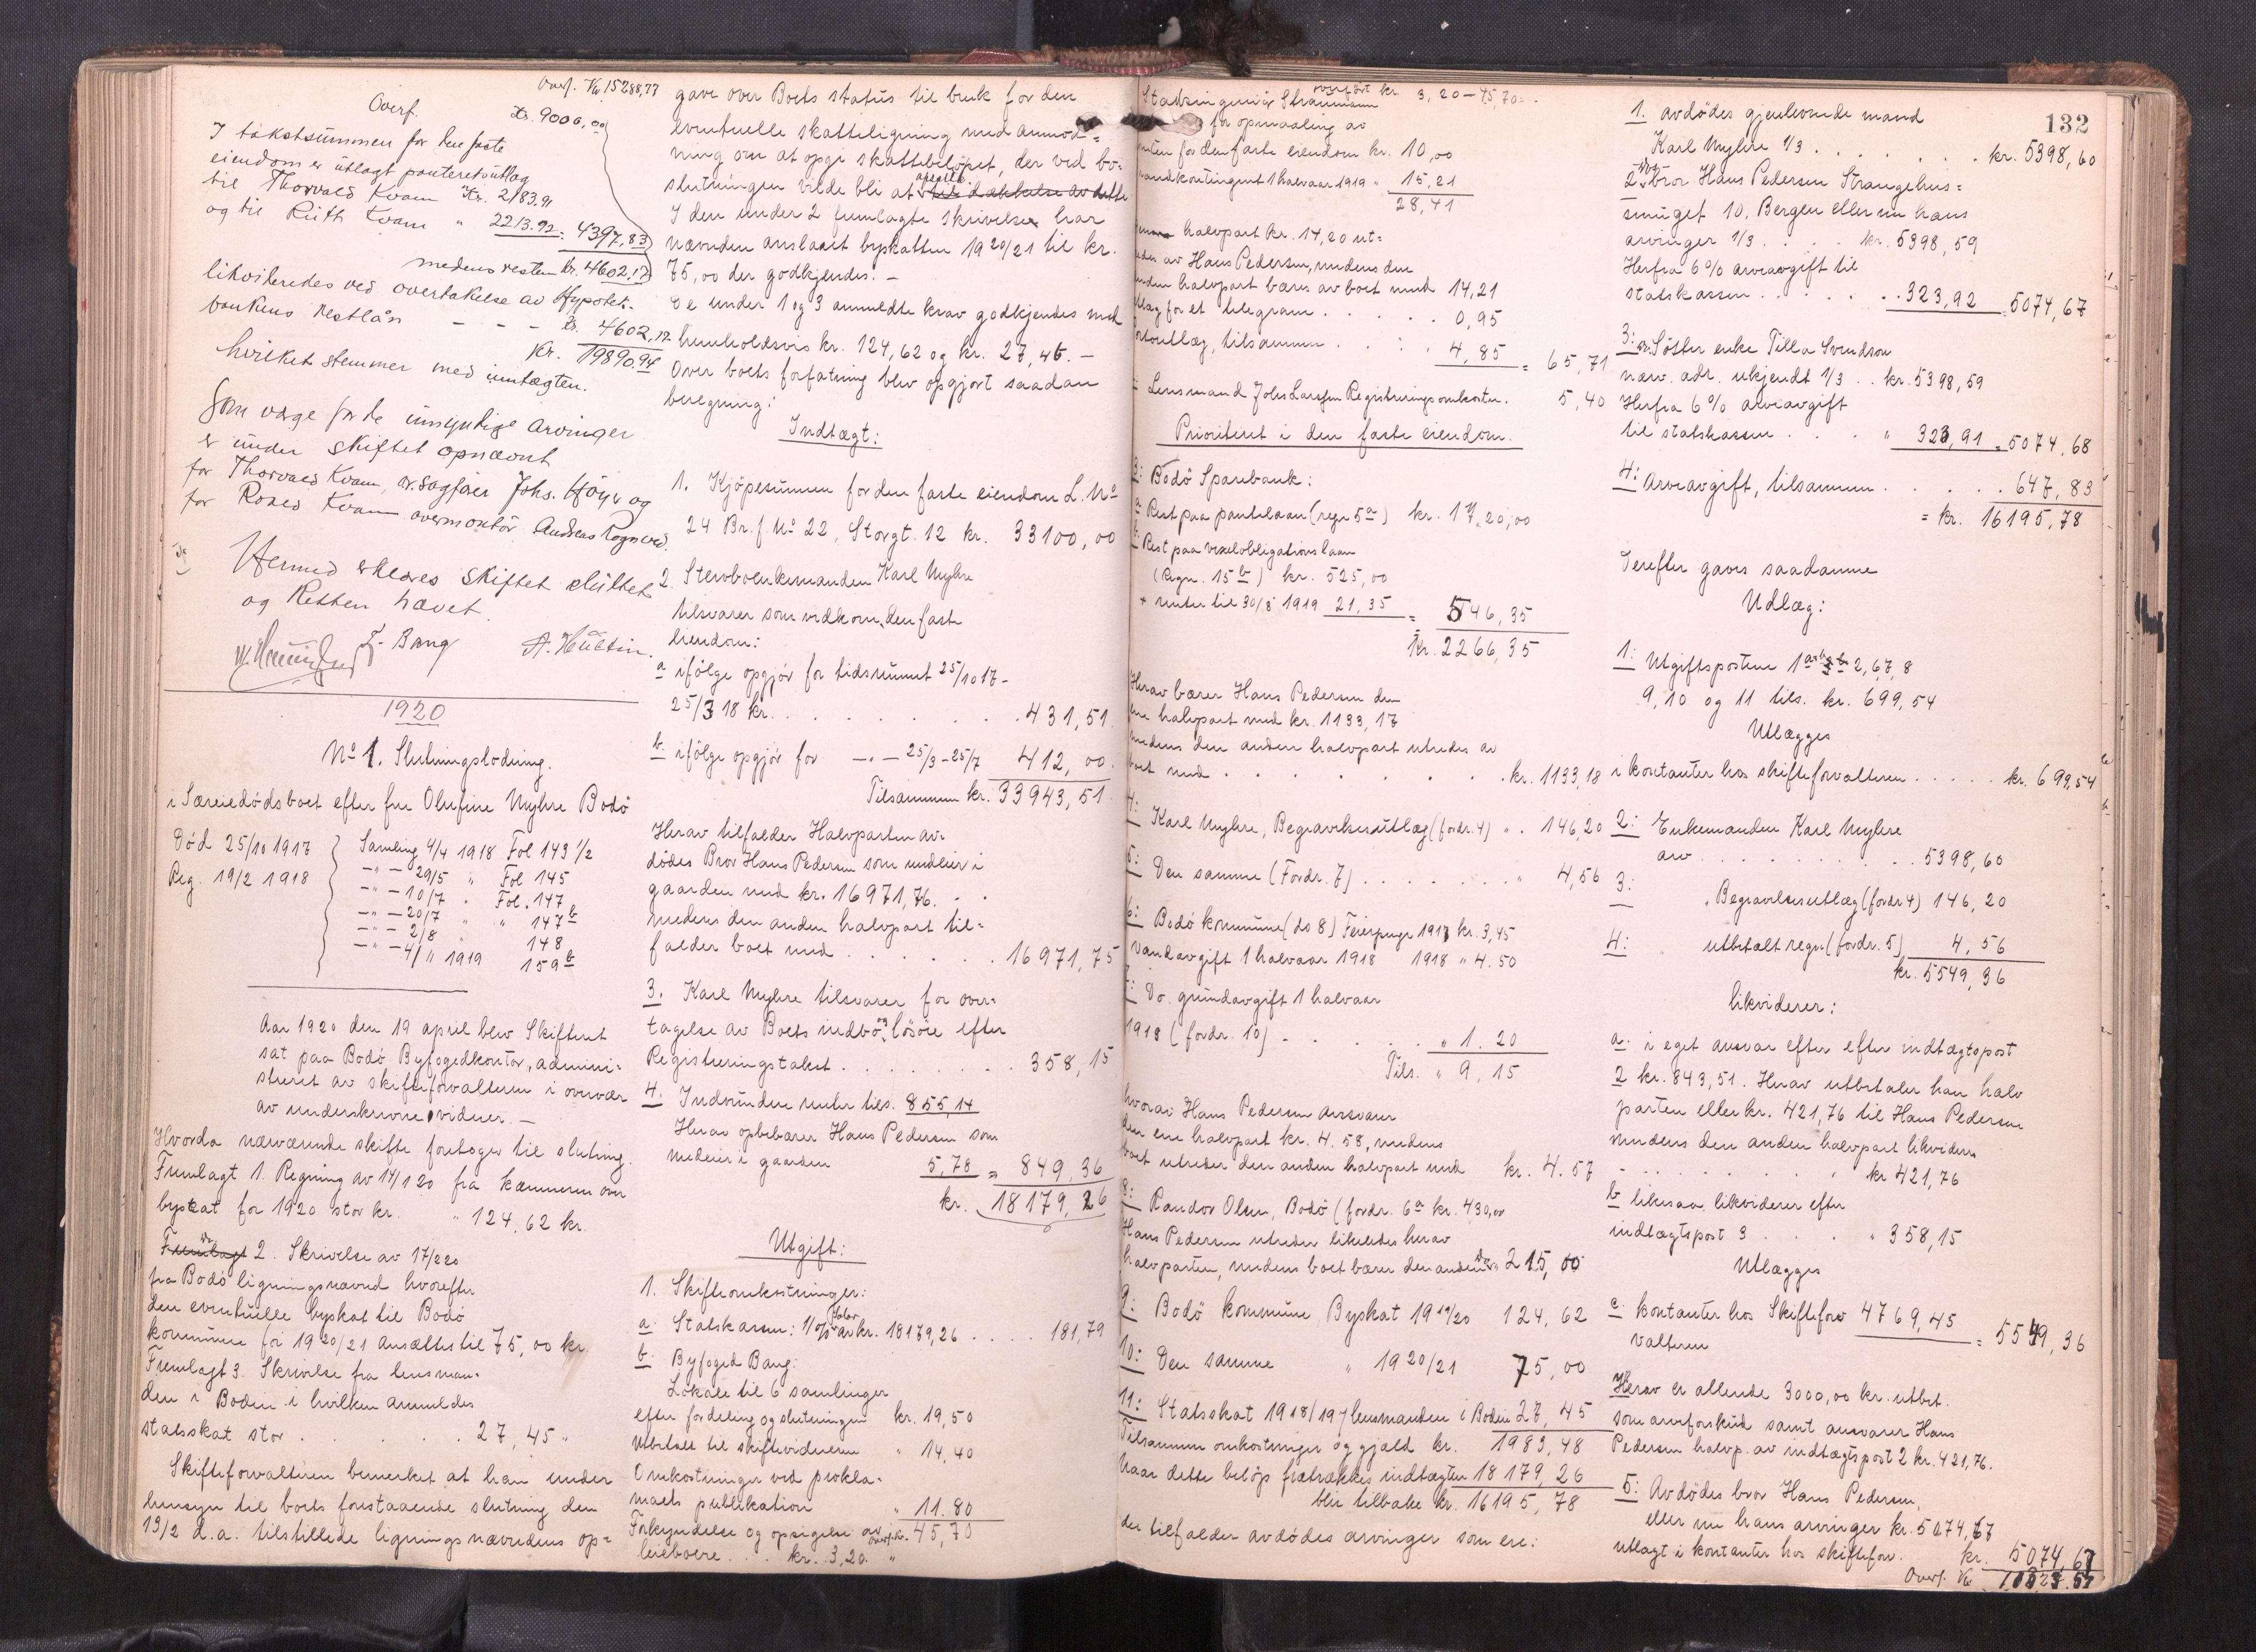 Overf. Kr. 15288,77
Overf. Kr. 9000,00
I takstsummen for den faste
eiendom er utlagt panteretsutlæg
til Thorvald Kvam Kr. 2183.91
og til Ruth Kvam " 2213.92 = 4397,83
medens resten kr. 4602,17
likvideredes ved overtakelse av Hypotek-
bankens restlån - - - kr. 4602,17
Kr. 19890.94
hvilket stemmer med inntægten.
Som værge for de umyndige arvinger
er under skiftet opnævnt
for Thorvald Kvam, o.r.sagfører Johs. Høyer og
for Kvam overmontør Andreas
Hermed erklæres skiftet sluttet
og Retten hævet.
F. Bang
1920
No 1. Slutningslodning.
i Særeiedødsboet efter fru Olufine Myhre Bodö
Död 25/10 1917
Reg. 19/2 1918
Samling 4/4 1918 Fol 143 1/2
-"- 29/5 " Fol 145
-"- 10/7 " Fol. 147
-"- 20/7 " " 147 b
-"- 2/8 " 148
-"- 4/11 1919 159 b
Aar 1920 den 19 april blev Skifteret
sat paa Bodö Byfogedkontor, admini-
streret av skifteforvalteren i overvær
av underskrevne vidner. —
Hvorda nærværende skifte foretoges til slutning.
Fremlagt 1. Regning av 14/1 20 fra kæmneren over
byskat for 1920 stor kr. " 124,62 kr.
Fremlagt 2. Skrivelse av 17/2 20
fra Bodö ligningsnævnd hvorefter
den eventuelle byskat til Bodö
kommune for 1920/21 ansættes til 75,00 kr.
Fremlagt 3. Skrivelse fra lensman-
den i Bodin i hvilken anmeldes
statsskat stor . . . . . 27,45 "
Skifteforvalteren bemerket at han under
hensyn til boets forestaaende slutning den
13/2 d.a. tilstillede ligningsnævnden op-
gave over Boets status til bruk for den
eventuelle skatteligning med anmod-
ning om at opgi skattebelöpet, der ved bo-
slutningen vilde bli at avsætte til dækkelse av dette
I den under 2 fremlagte skrivelse har
nævnden anslaaet byskatten 1920/21 til kr.
75,00 der godkjendes. —
De under 1 og 3 anmeldte krav godkjendes med
henholdsvis kr. 124,62 og kr. 27,45. —
Over boets forfatning blev opgjort saadan
beregning:
Indtægt:
1. Kjöpesummen for den faste eiendom L. No
24 Br.f. No 22, Storgt. 12 kr. 33100,00
2. Stervboenkemanden Karl Myhre
tilsvarer som vedkom. den faste
eiendom:
a ifölge opgjör for tidsrummet 25/10 17 -
25/3 18 kr. . . . . . . . 431,51
b ifölge opgjör for -"- 25/3 - 25/7 412,00.
Tilsammen kr. 33943,51
Herav tilfalder Halvparten av-
dödes Bror Hans Pedersen som medeier i
gaarden med kr. 16971,76. - -
medens den anden halvpart til-
falder boet med . . . . . . 16971,75
3. Karl Myhre tilsvarer for over-
tagelse av Boets indbo og lösöre efter
Registreringstakst . . . . . . . 358,15
4. Indvundne renter tils. 855,14
Herav oppebærer Hans Pedersen som
medeier i gaarden 5,78 = 849,36
kr. 18179,26
Utgift:
1. Skifteomkostninger:
a. Statskassen: 1 % av kr. 18179,26 . . . . 181,79
b. Byfoged Bang:
Lokale til 6 samlinger
efter fordeling og slutningen kr. 19,50
Utbetalt til skiftevidnerne " 14,40
Omkostninger ved prokla-
maets publikation " 11.80
Forkyndelse og opsigelse av Overf. kr. 45,70
leieboere . . . . kr. 3,20. "
overført kr. 3,20 — 45,70
Stadsingeniör Straumann
for opmaaling av
tomten for den faste eiendom kr. 10,00
Brandkontingent 1 halvaar 1919 " 15,21
28,41
halvpart kr. 14,20 ut-
redes av Hans Pedersen, medens den
anden halvpart bæres av boet med 14,21
Utlæg for et telegram . . . . . 0,95
Portoutlæg, tilsammen . . . . 4,85 = 65,71
Lensmand Johs Larssen Registreringsomkostn. 5,40
Prioriteret i den faste eiendom.
3: Bodö Sparebank:
a Rest paa pantelaan (regn 5 a) kr. 1720,00
b Rest paa vexelobligationslaan
(Regn. 15 b) kr. 525,00
+ renter til 30/8 1919 21,35 = 546,35
Kr. 2266,35
Herav bærer Hans Pedersen den
ene halvpart med kr. 1133,17
medens den anden halvpart utredes av
boet med . . . . . . . . kr. 1133,18
4: Karl Myhre, Begravelsesutlæg (fordr. 4) " . 146,20
5: Den samme (Fordr. 7) . . . . . . . " 4,56
6: Bodö kommune (do 8) Feierpenge 1917 kr. 3,45
Vandavgift 1 halvaar 1918 1918 " 4.50
7: Do. grundavgift 1 halvaar
1918 (fordr. 10) . . . . . " 1.20
Tils. " 9,15
hvorav Hans Pedersen ansvarer
den ene halvpart kr. 4.58, medens
boet utreder den anden halvpart med kr. 4.57
8: Randor Olsen, Bodö (fordr. 6 a kr. 430,00
Hans Pedersen utreder likeledes herav
halvparten, medens boet bærer den anden 215,00
9: Bodö kommune Byskat 1919/20 124,62
10: Den samme " 1920/21 75,00
11: Statsskat 1918/19 lensmanden i Bodin 27,45
Tilsammen omkostninger og gjæld kr. 1983,48
Naar dette belöp fratrækkes indtægten 18179,26
blir tilbake kr. 16195,78
der tilfalder avdödes arvinger som ere:
132
1. avdödes gjenlevende mand
Karl Myhre 1/3 . . . . . . . kr. 5398,60
2. bror Hans Pedersen Strangehus-
smuget 10, Bergen eller nu hans
arvinger 1/3 . . . . kr. 5398,59
Herfra 6 % arveavgift til
statskassen . . . . . . 323,92 = 5074,67
3: Söster enke Tilla Svendsen
næv. adr. ukjendt 1/3 . . kr. 5398,59
Herfra 6 % arveavgift
til statskassen . . . " 323,91 = 5074,68
4: Arveavgift, tilsammen . . . . . 647,83
= kr. 16195,78
Derefter gaves saadanne
Udlæg:
1: Utgiftspostene 1 2,67,8
9,10 og 11 tils. kr. 699,54
Utlægges
i kontanter hos skifteforvalteren . . . . . kr. 699,54
2: Enkemanden Karl Myhre
arv . . . . . . . . . 5398,60
3: " Begravelsesutlæg (fordr 4) 146,20
4: utbetalt regn (fordr. 5) 4,56
kr. 5549,36
likviderer:
a. i eget ansvar efter efter indtægtspost
2 kr. 843,51. Herav utbetaler han halv
parten eller kr. 421,76 til Hans Pedersen
medens den anden halvpart likvideres
- . . . . . . . . kr 421,76
b likesaa likviderer efter
indtægtspost 3 . . . . " 358,15
Utlægges
c. kontanter hos Skifteforv 4769,45
valteren = 5549,36
Herav er allerede 3000,00 kr. utbet.
som arveforskud samt ansvarer Hans
Pedersen halvp. av indtægtspost 2 kr. 421,76.
5: Avdödes bror Hans Pedersen,
eller nu hans arvinger kr. 5074,67
utlagt i kontanter hos skifteforv. kr. 5074,67
Overf. Kr